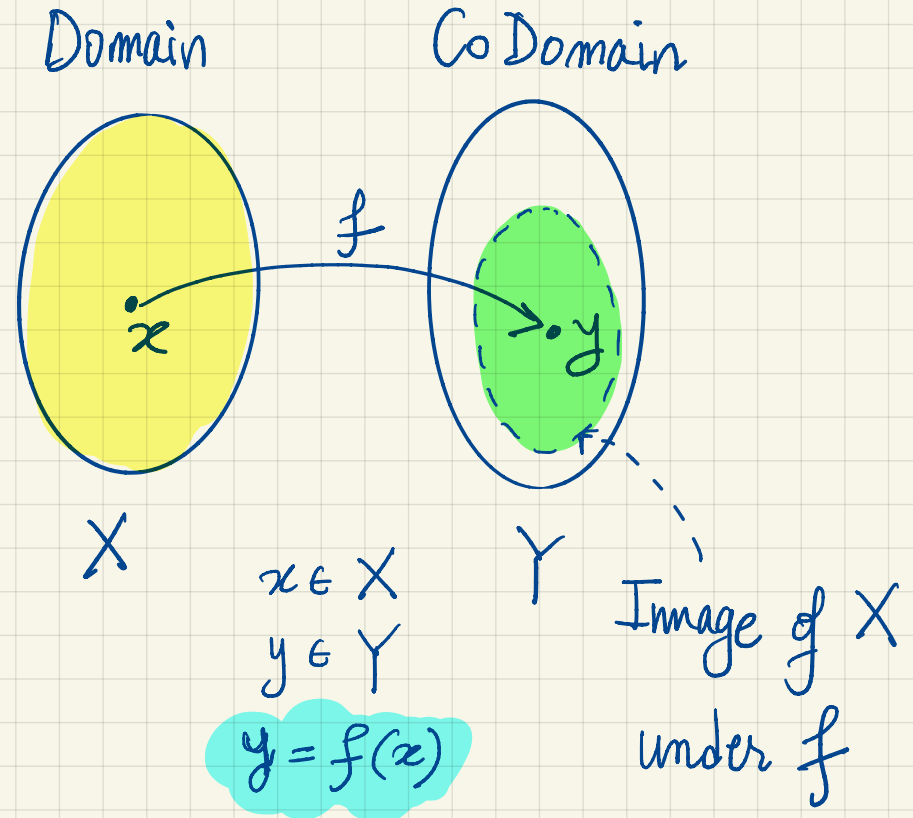 Domain
CoDomain
f
x
y
X
Y
x ∈ X
y ∈ Y
y = f(x)
Image of X
under f